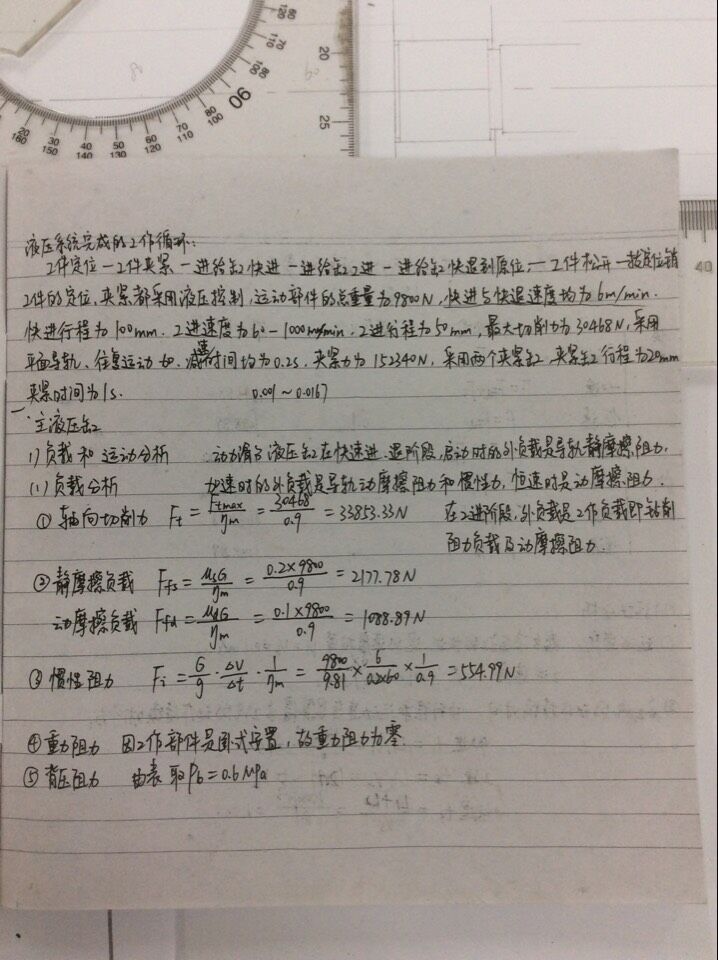 液压系统完成的工作循环:
工件定位一工件夹紧一进给缸快进一进给缸工进一进给缸快退到原位,一工件松开一拔定位销
工件的定位,夹紧都采用液压控制,运动部件的总重量为9800N,快进与快退速度均为6m/min.
快进行程为100mm.工进速度为60-1000mm/min.工进行程为50mm,最大切削力为30468N,采用
平面导轨.往复运动加.减速时间均为0.2s,夹紧力为152340N,采用两个夹紧缸.夹紧缸行程为20mm
夹紧时间为1s. 0.001~0.0167
一.主液压缸
1)负载和运动分析 动力滑台液压缸在快速进.退阶段,启动时的外负载是导轨静摩擦阻力,
(1)负载分析 加速时的外负载是导轨动摩擦阻力和惯性力,恒速时是动摩擦阻力.
① 轴向切削力 Ft = Ftmax/ηm = 30468/0.9 = 33853.33N 在工进阶段,外负载是工作负载即钻削
阻力负载及动摩擦阻力.
② 静摩擦负载 Ffs = μsG/ηm = 0.2×9800/0.9 = 2177.78N
动摩擦负载 Ffd = μdG/ηm = 0.1×9800/0.9 = 1088.89N
③ 惯性阻力 Fi = G/g · ΔV/Δt · 1/ηm = 9800/9.81 × 6/0.2×60 × 1/0.9 = 554.99N
④ 重力阻力 因工作部件是卧式安置,故重力阻力为零.
⑤ 背压阻力 由表取Pb=0.6MPa
20
25
90
40